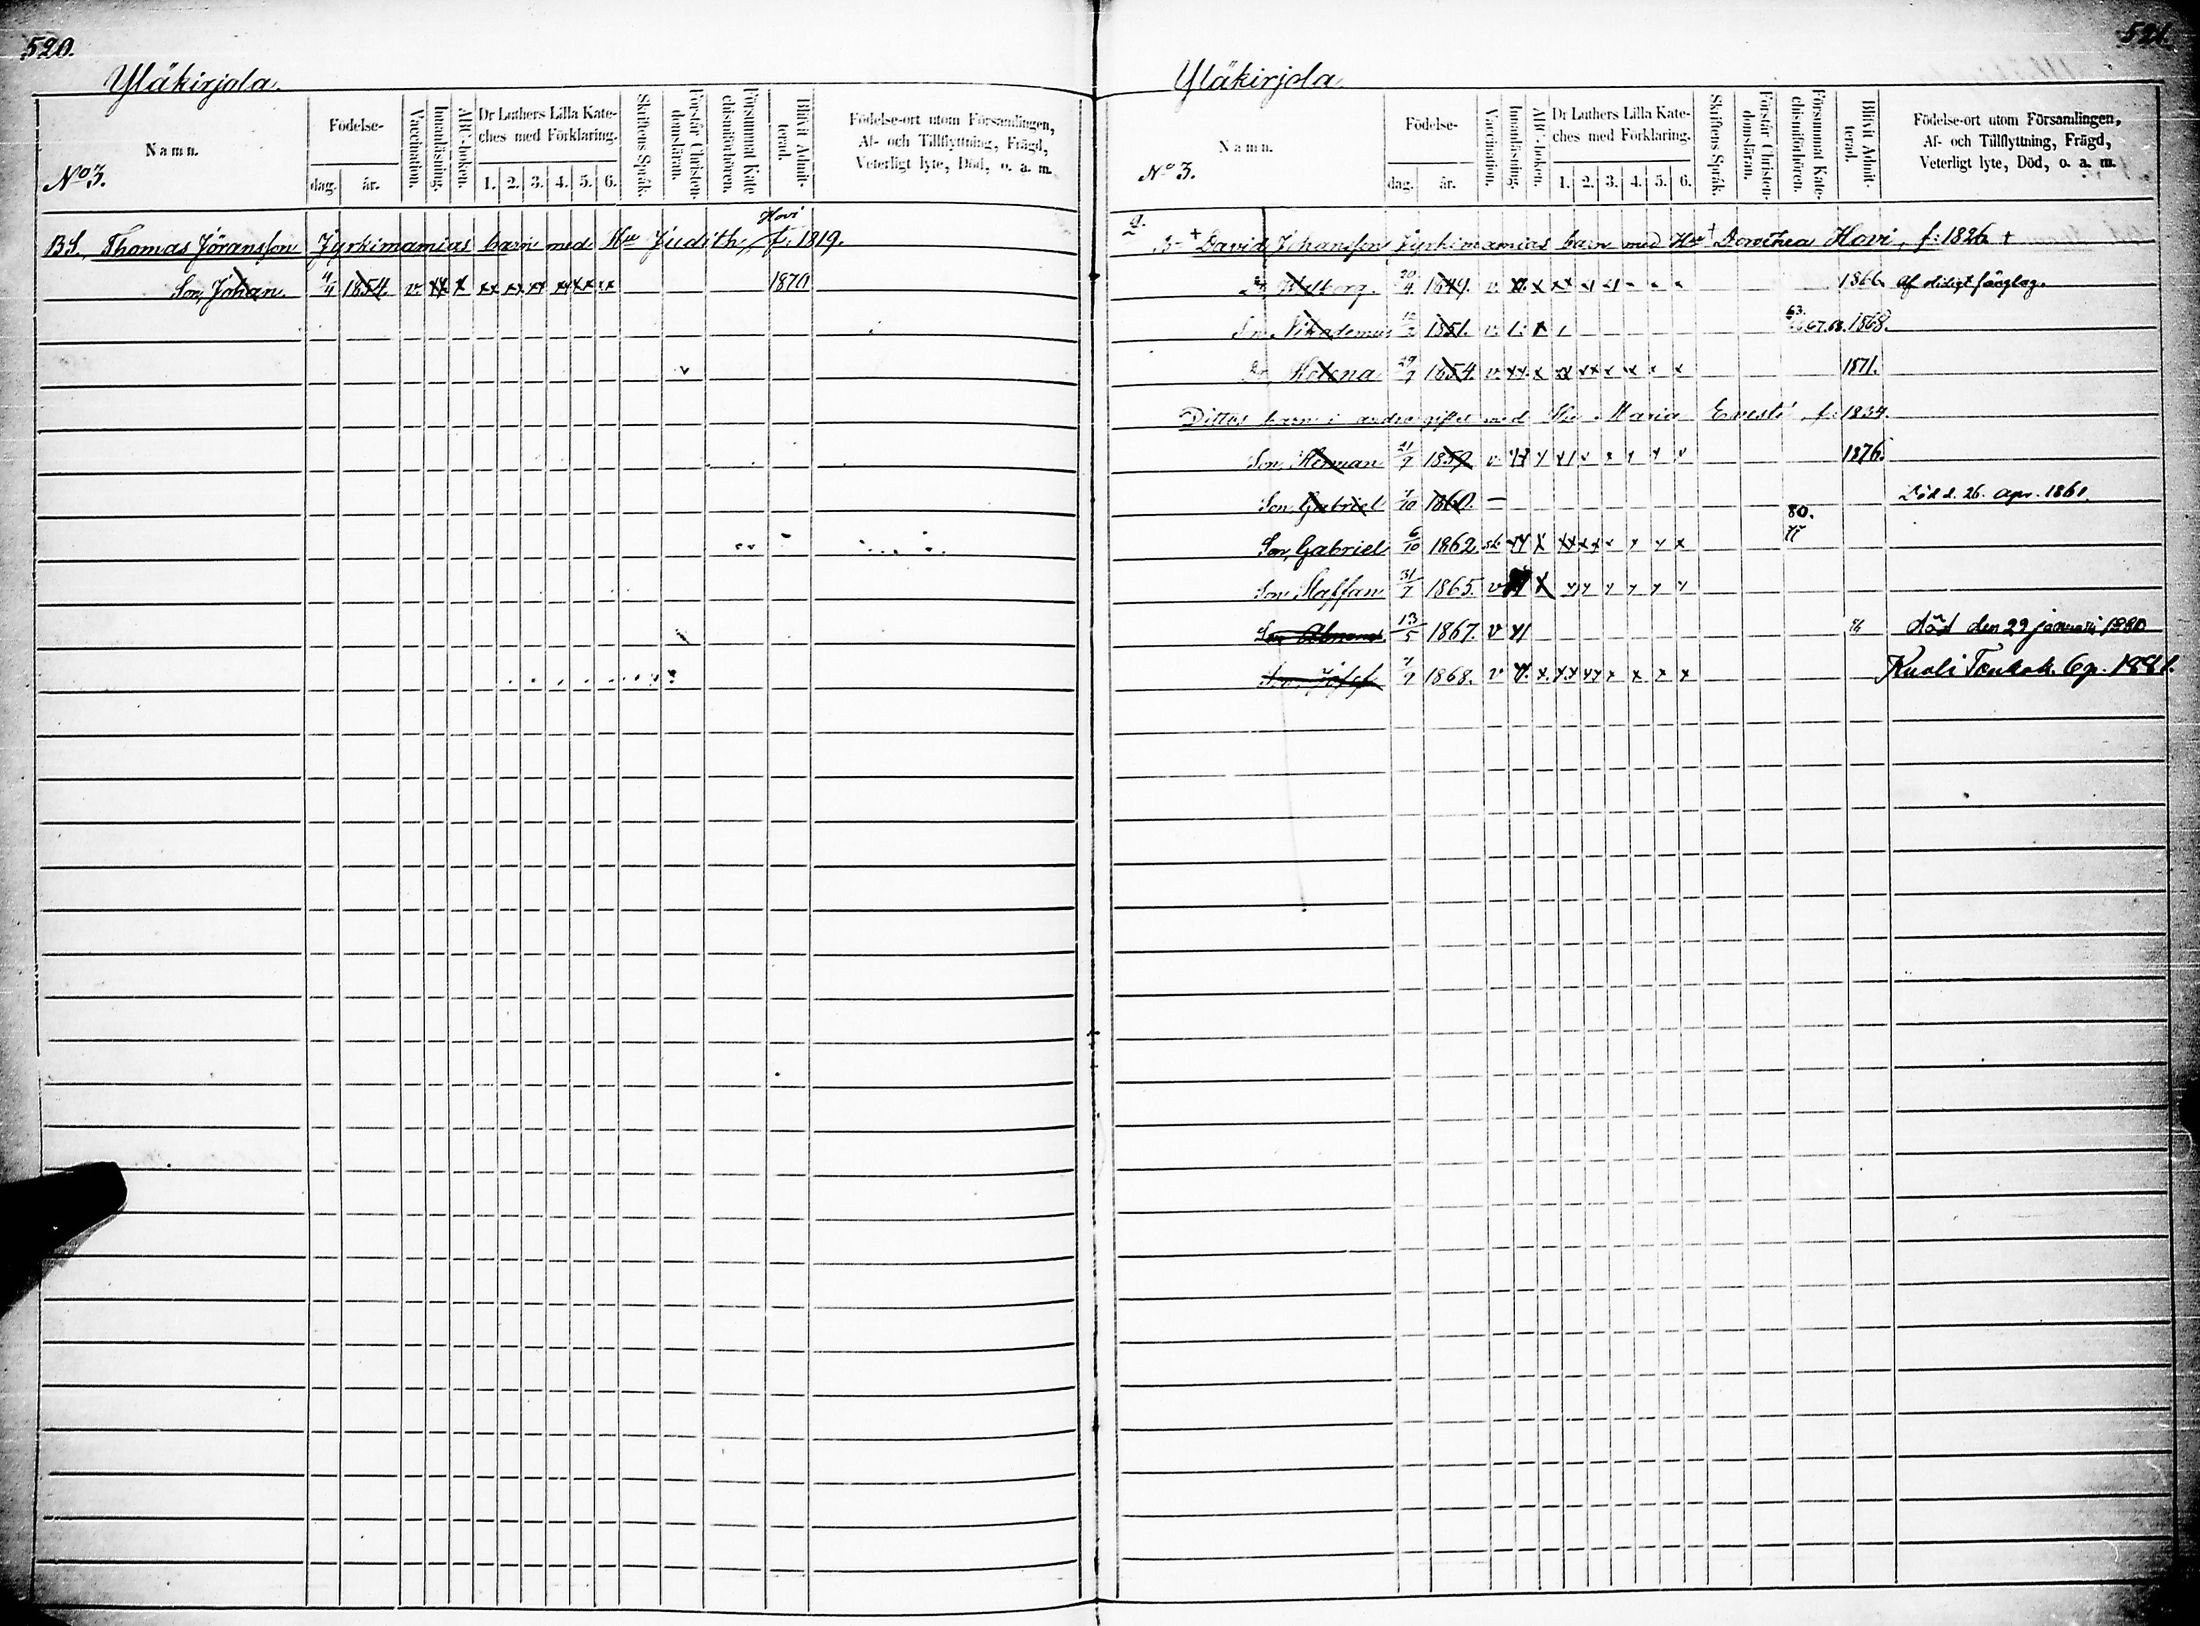 520.
Yläkirjola.
No 3.
Namn.
Födelse-
dag. år.
Vaccination.
Innanläsning.
ABC-boken.
Dr Luthers Lilla Kate-
ches med Förklaring.
1. 2. 3. 4. 5. 6.
Skriftens Språk.
Förstår Christen-
domsläran.
Försummat Kate-
chismiförhören.
Blifvit Admit-
terad.
Födelse-ort utom Församlingen,
Af- och Tillflyttning, Frägd,
Veterligt lyte, Död, o. a. m.
Hovi
BS. Thomas Jöransson Jyrkinamias barn med Hu Judith, f. 1819.
Son, Johan. 4/4 1854. v xx x xx xx xx xx xx xx 1870
521.
Yläkirjola
No 3.
Namn.
Födelse-
dag. år.
Vaccination.
Innanläsning.
ABC-boken.
Dr Luthers Lilla Kate-
ches med Förklaring.
1. 2. 3. 4. 5. 6.
Skriftens Språk.
Förstår Christen-
domsläran.
Försummat Kate-
chismiförhören.
Blifvit Admit-
terad.
Födelse-ort utom Församlingen,
Af- och Tillflyttning, Frägd,
Veterligt lyte, Död, o. a. m.
+ David Johansson Jyrkinamias barn med Hu + Dorothea Hovi, f: 1826 +
20/4 1849. v 1866. Af
Nikodemus 1851. v. 63. 67. 68. 1868.
Helena 29/7 1854. v. xx x 1871.
Dittos barn i andra giftet med Hu Maria Envesti, f. 1834.
Son Herman 21/9 1859 v 1876.
Son Gabriel 7/10 1860. — Död d. 26. apr. 1861.
80.
77
Son, Gabriel 6/10 1862
Son Staffan 31/7 1865. v x
Son 13/5 1867. v död den 29 januari 1880
Son Josef 7/9 1868. v Kuoli Toukok. 6 p. 1881.